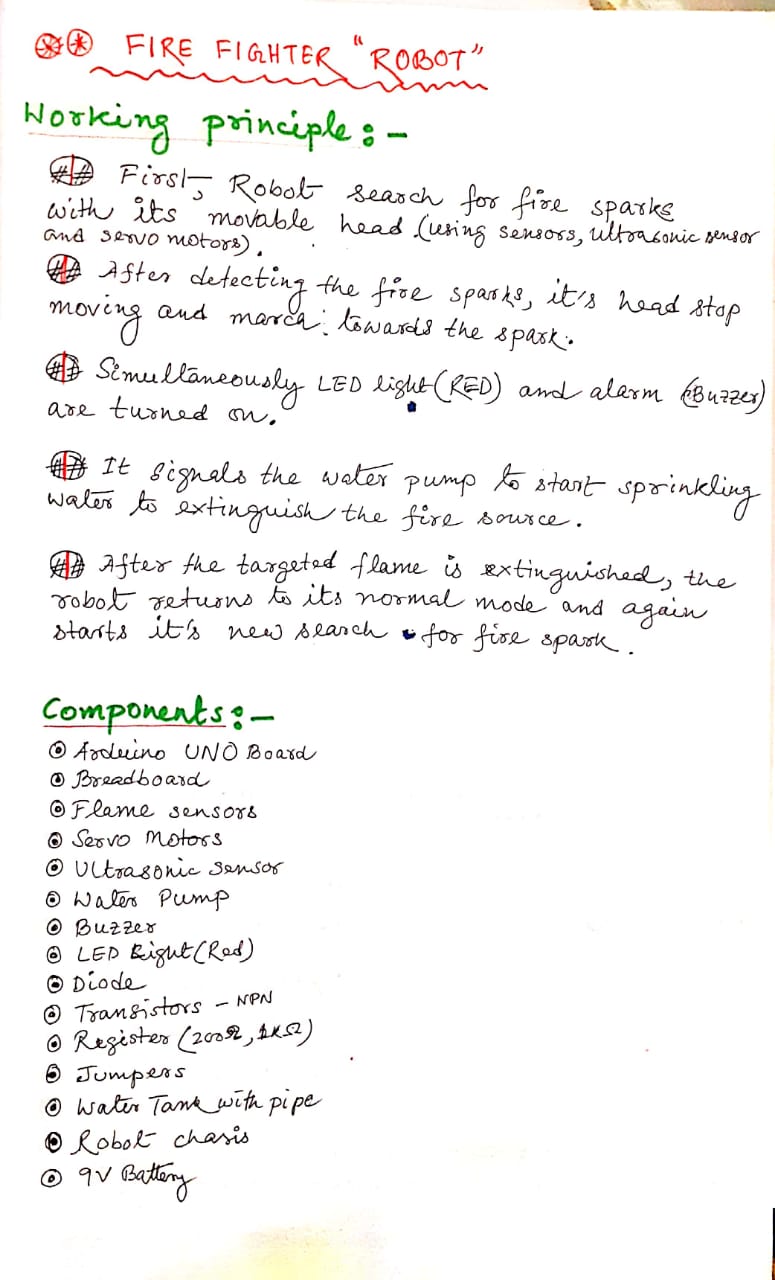 FIRE FIGHTER "ROBOT"
Working principle :-
First, Robot search for fire sparks
with its movable head (using sensors, ultrasonic sensor
and servo motors).
After detecting the fire sparks, it's head stop
moving and march towards the spark.
Simultaneously LED light (RED) and alarm (Buzzer)
are turned on.
It signals the water pump to start sprinkling
water to extinguish the fire source.
After the targeted flame is extinguished, the
robot returns to its normal mode and again
starts it's new search for fire spark.
Components :-
Arduino UNO Board
Breadboard
Flame sensors
Servo Motors
Ultrasonic sensor
Water Pump
Buzzer
LED Light (Red)
Diode
Transistors - NPN
Register (200Ω, 1KΩ)
Jumpers
Water Tank with pipe
Robot chasis
9V Battery